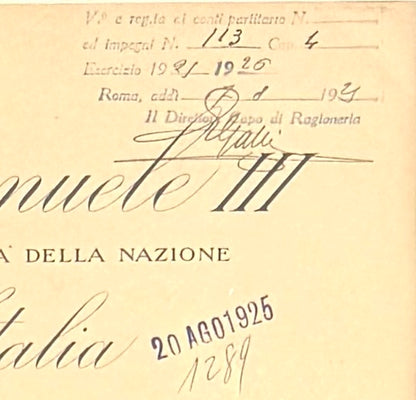 V.º e reg.ta ai conti partitario N.
ed impegni N. 113 Cap. 4
Esercizio 1925 1926
Roma, addì 8 1925
Il Direttore Capo di Ragioneria
nuele III
A' DELLA NAZIONE
talia
20 AGO 1925
1289